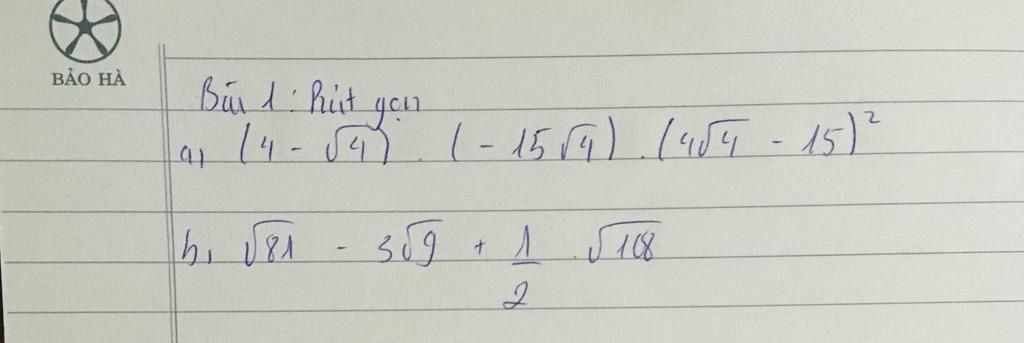 BẢO HÀ
Bài 1: Rút gọn
a, (4 - √4) . (- 15√4) . (4√4 - 15)²
b, √81 - 3√9 + 1/2 . √108